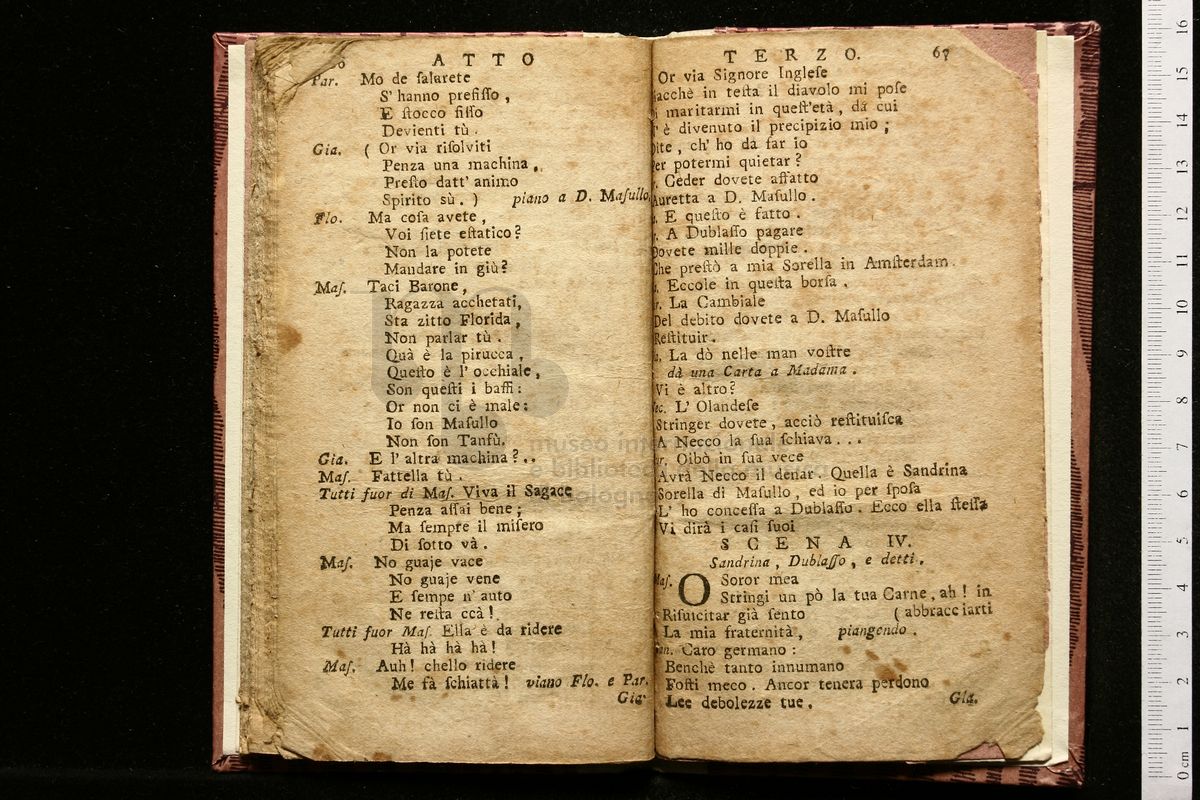 ATTO
Par. Mo de ſalarete
S' hanno prefiſſo,
E ſtocco fiſſo
Devienti tù.
Gia. ( Or via riſolviti
Penza una machina,
Preſto datt' animo
Spirito sù. ) piano a D. Maſullo.
Flo. Ma coſa avete,
Voi ſiete eſtatico?
Non la potete
Mandare in giù?
Maſ. Taci Barone,
Ragazza acchetati,
Sta zitto Florida,
Non parlar tù.
Quà è la pirucca,
Queſto è l' occhiale,
Son queſti i baffi:
Or non ci è male:
Io ſon Maſullo
Non ſon Tanfù.
Gia. E l' altra machina?..
Maſ. Fattella tù.
Tutti fuor di Maſ. Viva il Sagace
Penza aſſai bene;
Ma ſempre il miſero
Di ſotto và.
Maſ. No guaje vace
No guaje vene
E ſempe n' auto
Ne reſta ccà!
Tutti fuor Maſ. Ella è da ridere
Hà hà hà hà!
Maſ. Auh! chello ridere
Me fà ſchiattà! viano Flo. e Par.
Gia.
TERZO. 67
Or via Signore Ingleſe
acchè in teſta il diavolo mi poſe
maritarmi in queſt'età, da cui
è divenuto il precipizio mio;
Dite, ch' ho da far io
Per potermi quietar?
Ceder dovete affatto
Lauretta a D. Maſullo.
E queſto è fatto.
A Dublaſſo pagare
Dovete mille doppie.
Che preſtò a mia Sorella in Amſterdam.
Eccole in queſta borſa.
La Cambiale
Del debito dovete a D. Maſullo
Reſtituir.
La dò nelle man voſtre
dà una Carta a Madama.
Vi è altro?
L' Olandeſe
Stringer dovete, acciò reſtituiſca
A Necco la ſua ſchiava...
Oibò in ſua vece
Avrà Necco il denar. Quella è Sandrina
Sorella di Maſullo, ed io per ſpoſa
L' ho conceſſa a Dublaſſo. Ecco ella ſteſſa
Vi dirà i caſi ſuoi
SCENA IV.
Sandrina, Dublaſſo, e detti.
Maſ. O Soror mea
Stringi un pò la tua Carne, ah! in
Riſuſcitar già ſento ( abbracciarti
La mia fraternità, piangendo.
San. Caro germano:
Benchè tanto innumano
Foſti meco. Ancor tenera perdono
Lee debolezze tue.
Gia.